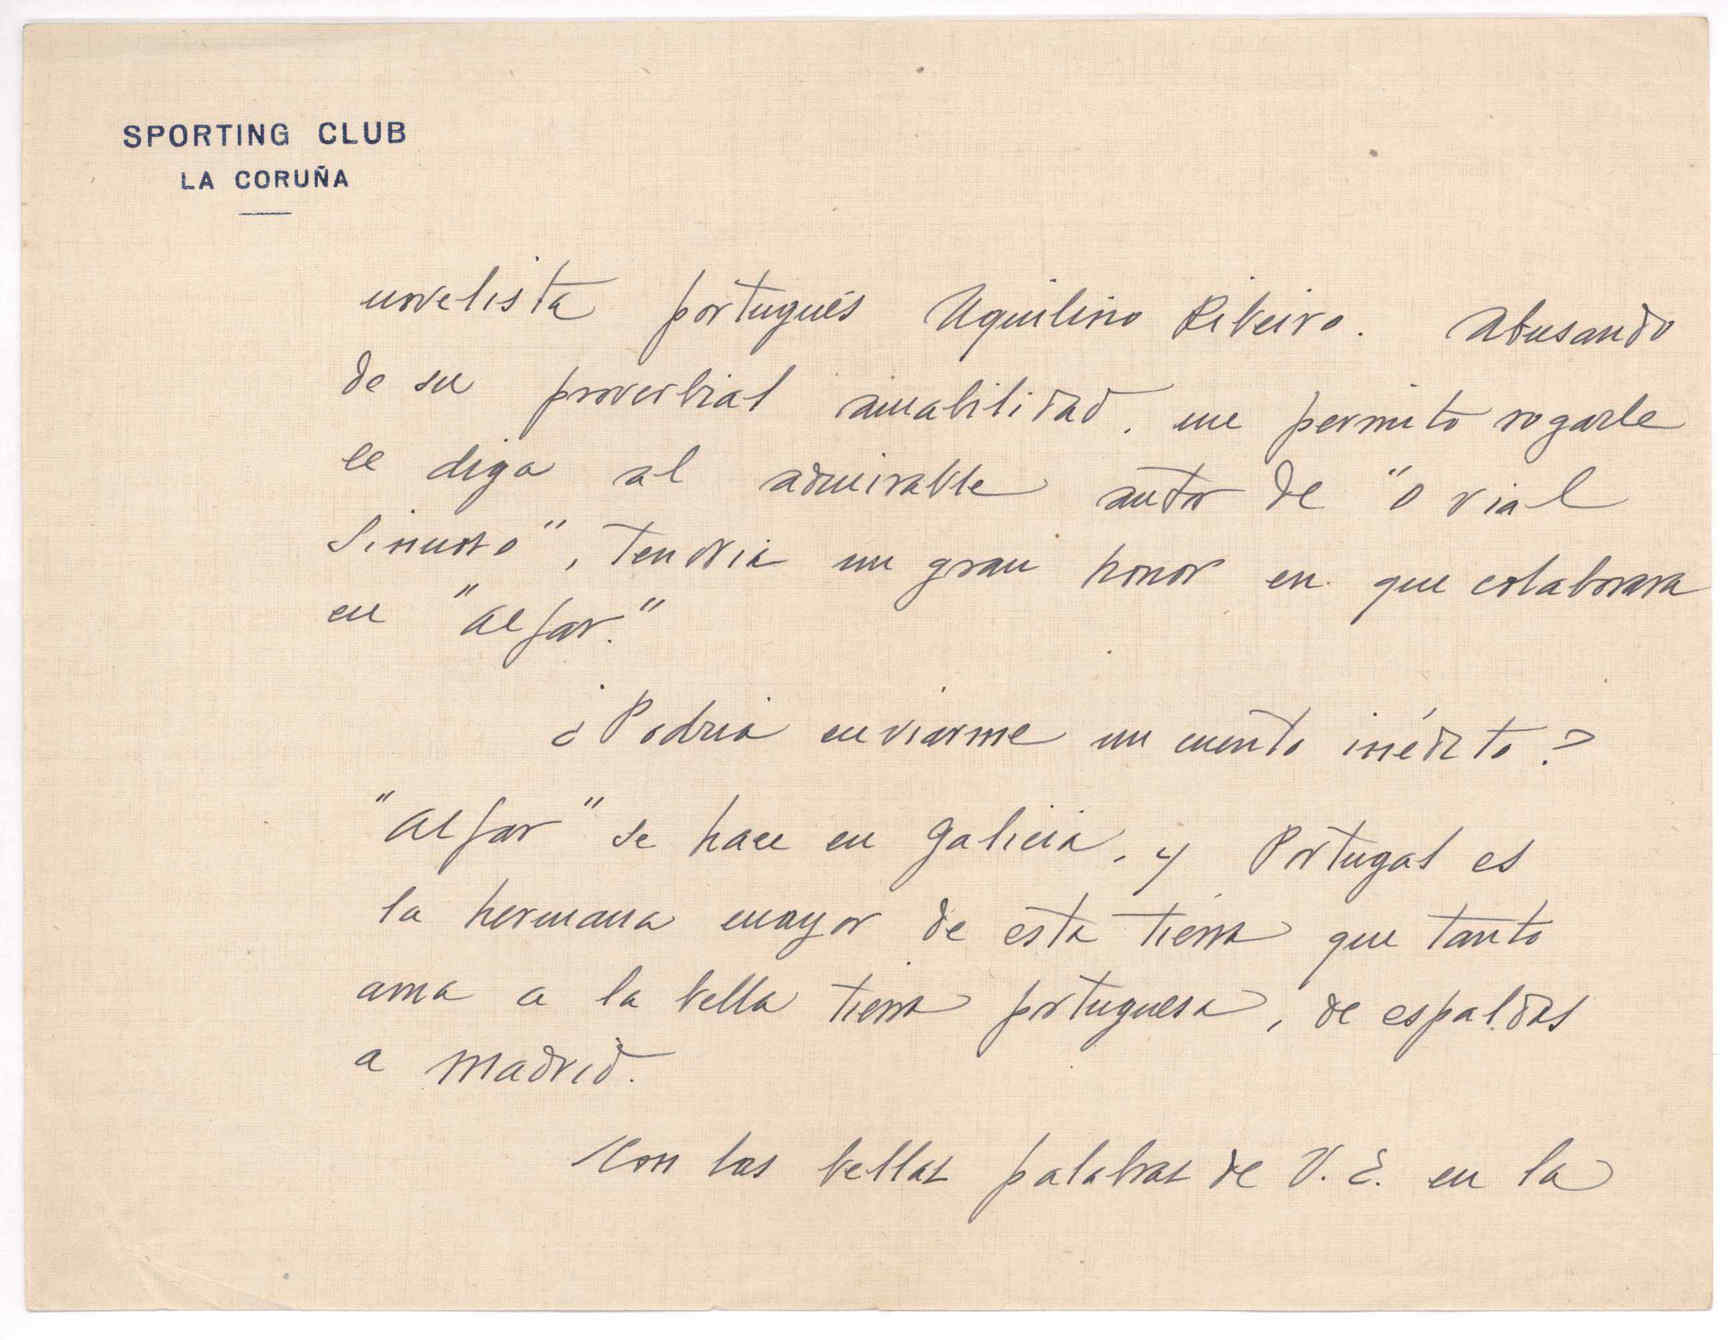 SPORTING CLUB
LA CORUÑA
novelista portugués Aquilino Ribeiro. Abusando
de su proverbial amabilidad, me permito rogarle
le diga al admirable autor de "O vial
Sinuoso", tendria un gran honor en que colaborara
en "Alfar."
¿Podria enviarme un cuento inédito?
"Alfar" se hace en Galicia, y Portugal es
la hermana mayor de esta tierra que tanto
ama a la bella tierra portuguesa, de espaldas
a Madrid.
Con las bellas palabras de V. E. en la